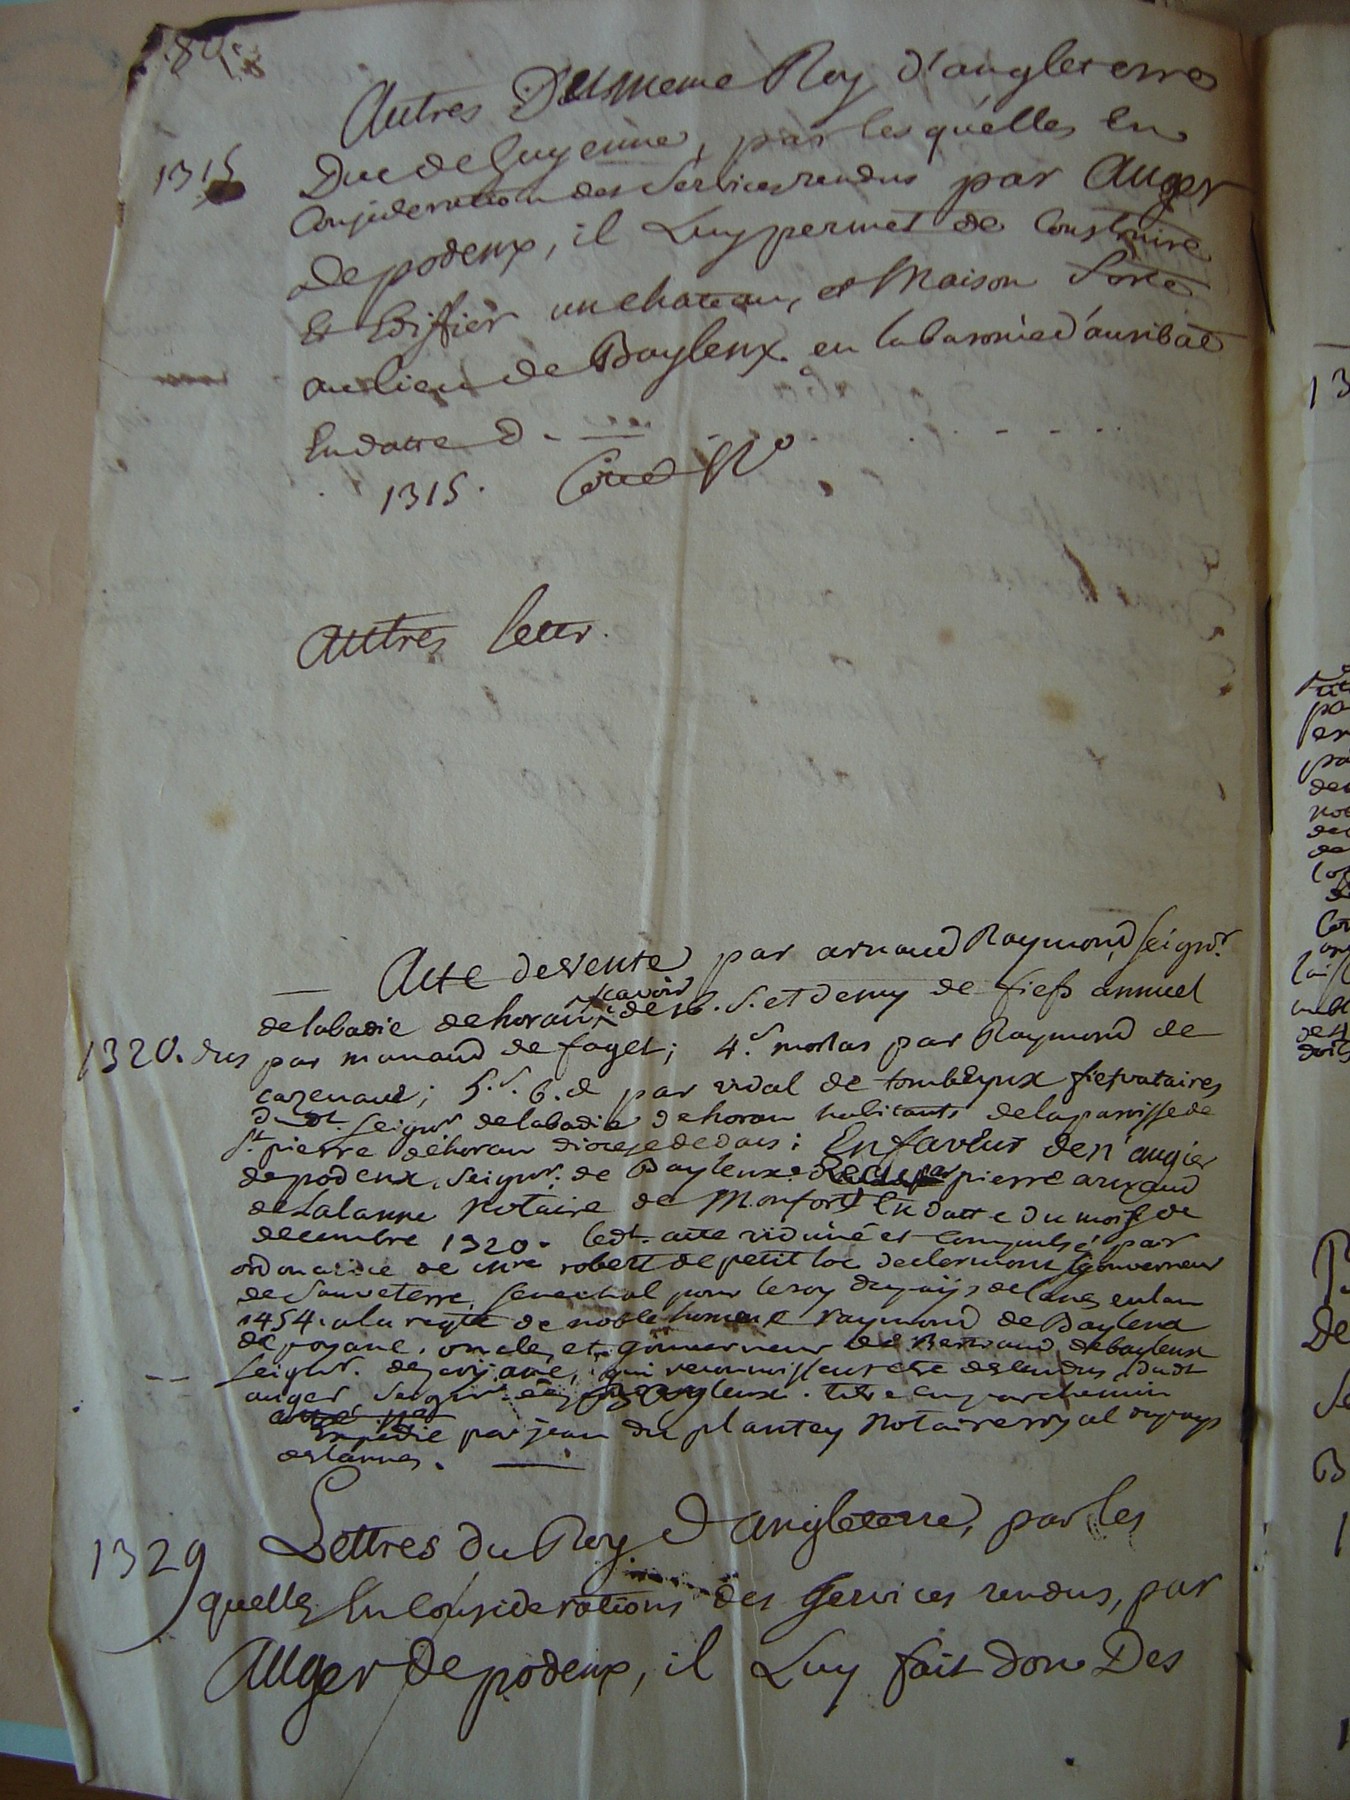 Autres Dumeme Roy d'angleterre
1315 Duc de Guyenne, par les quelles En
Consideration des Services rendus par Auger
de podenx, il Luy permet de Construire
Et Ediffier un chateau, et Maison forte
au lieu de Baylenx. en la baronie d'auribat
En datte d
1315. Cotté N°
autres lettr.
Acte de vente par arnaud Raymond, seignr.
de labadie de horan, scavoir de 16. s. et demy de fiefs annuel
1320. dus par manaud de faget; 4.s morlas par Raymond de
cazenave; 5.s. 6.d par vidal de tombeyux fiefvataires
dudt. seignr de labadie de horan habitants de la parroisse de
St. pierre de horan dioceze de dacs; En faveur de n'augier
de podenx, seignr. de Baylenx. pierre arnaud
de Lalanne Notaire de Monfort En datte du mois de
decembre 1320. ledt. acte vidimé et compulsé par
ordonance de mre robert de petit loc de clermont gouverneur
de Sauveterre, senechal pour le roy du pays de lanes en lan
1454. a la reqte de noble homme raymond de Baylenx
de poyane, oncle, et gouverneur de Bertrand de baylenx
seignr. de poyane, qui reconnoissent etre dessendus dudt
auger seignr de baylenx. titre en parchemin
Expedié par jean du plantey Notaire royal du pays
des lannes.
1329 Lettres du Roy d'angleterre, par les
quelles En Considerations des Services rendus, par
Auger de podenx, il Luy fait don Des